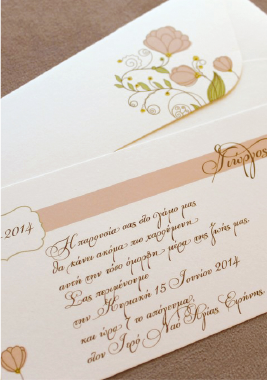 Γιώργος
-2014
Η παρουσία σας στο γάμο μας
θα κάνει ακόμα πιο χαρούμενη
αυτή την τόσο όμορφη μέρα της ζωής μας.
Σας περιμένουμε
την Κυριακή 15 Ιουνίου 2014
και ώρα 7 το απόγευμα,
στον Ιερό Ναό Αγίας Ειρήνης